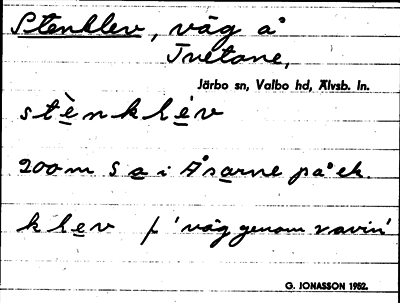 Stenklev, väg å
Tvetane,
Järbo sn, Valbo hd, Älvsb. ln.
stènklév
200 m S a i Åsarne på ek.
klev f 'väg genom ravin'
G. JONASSON 1952.